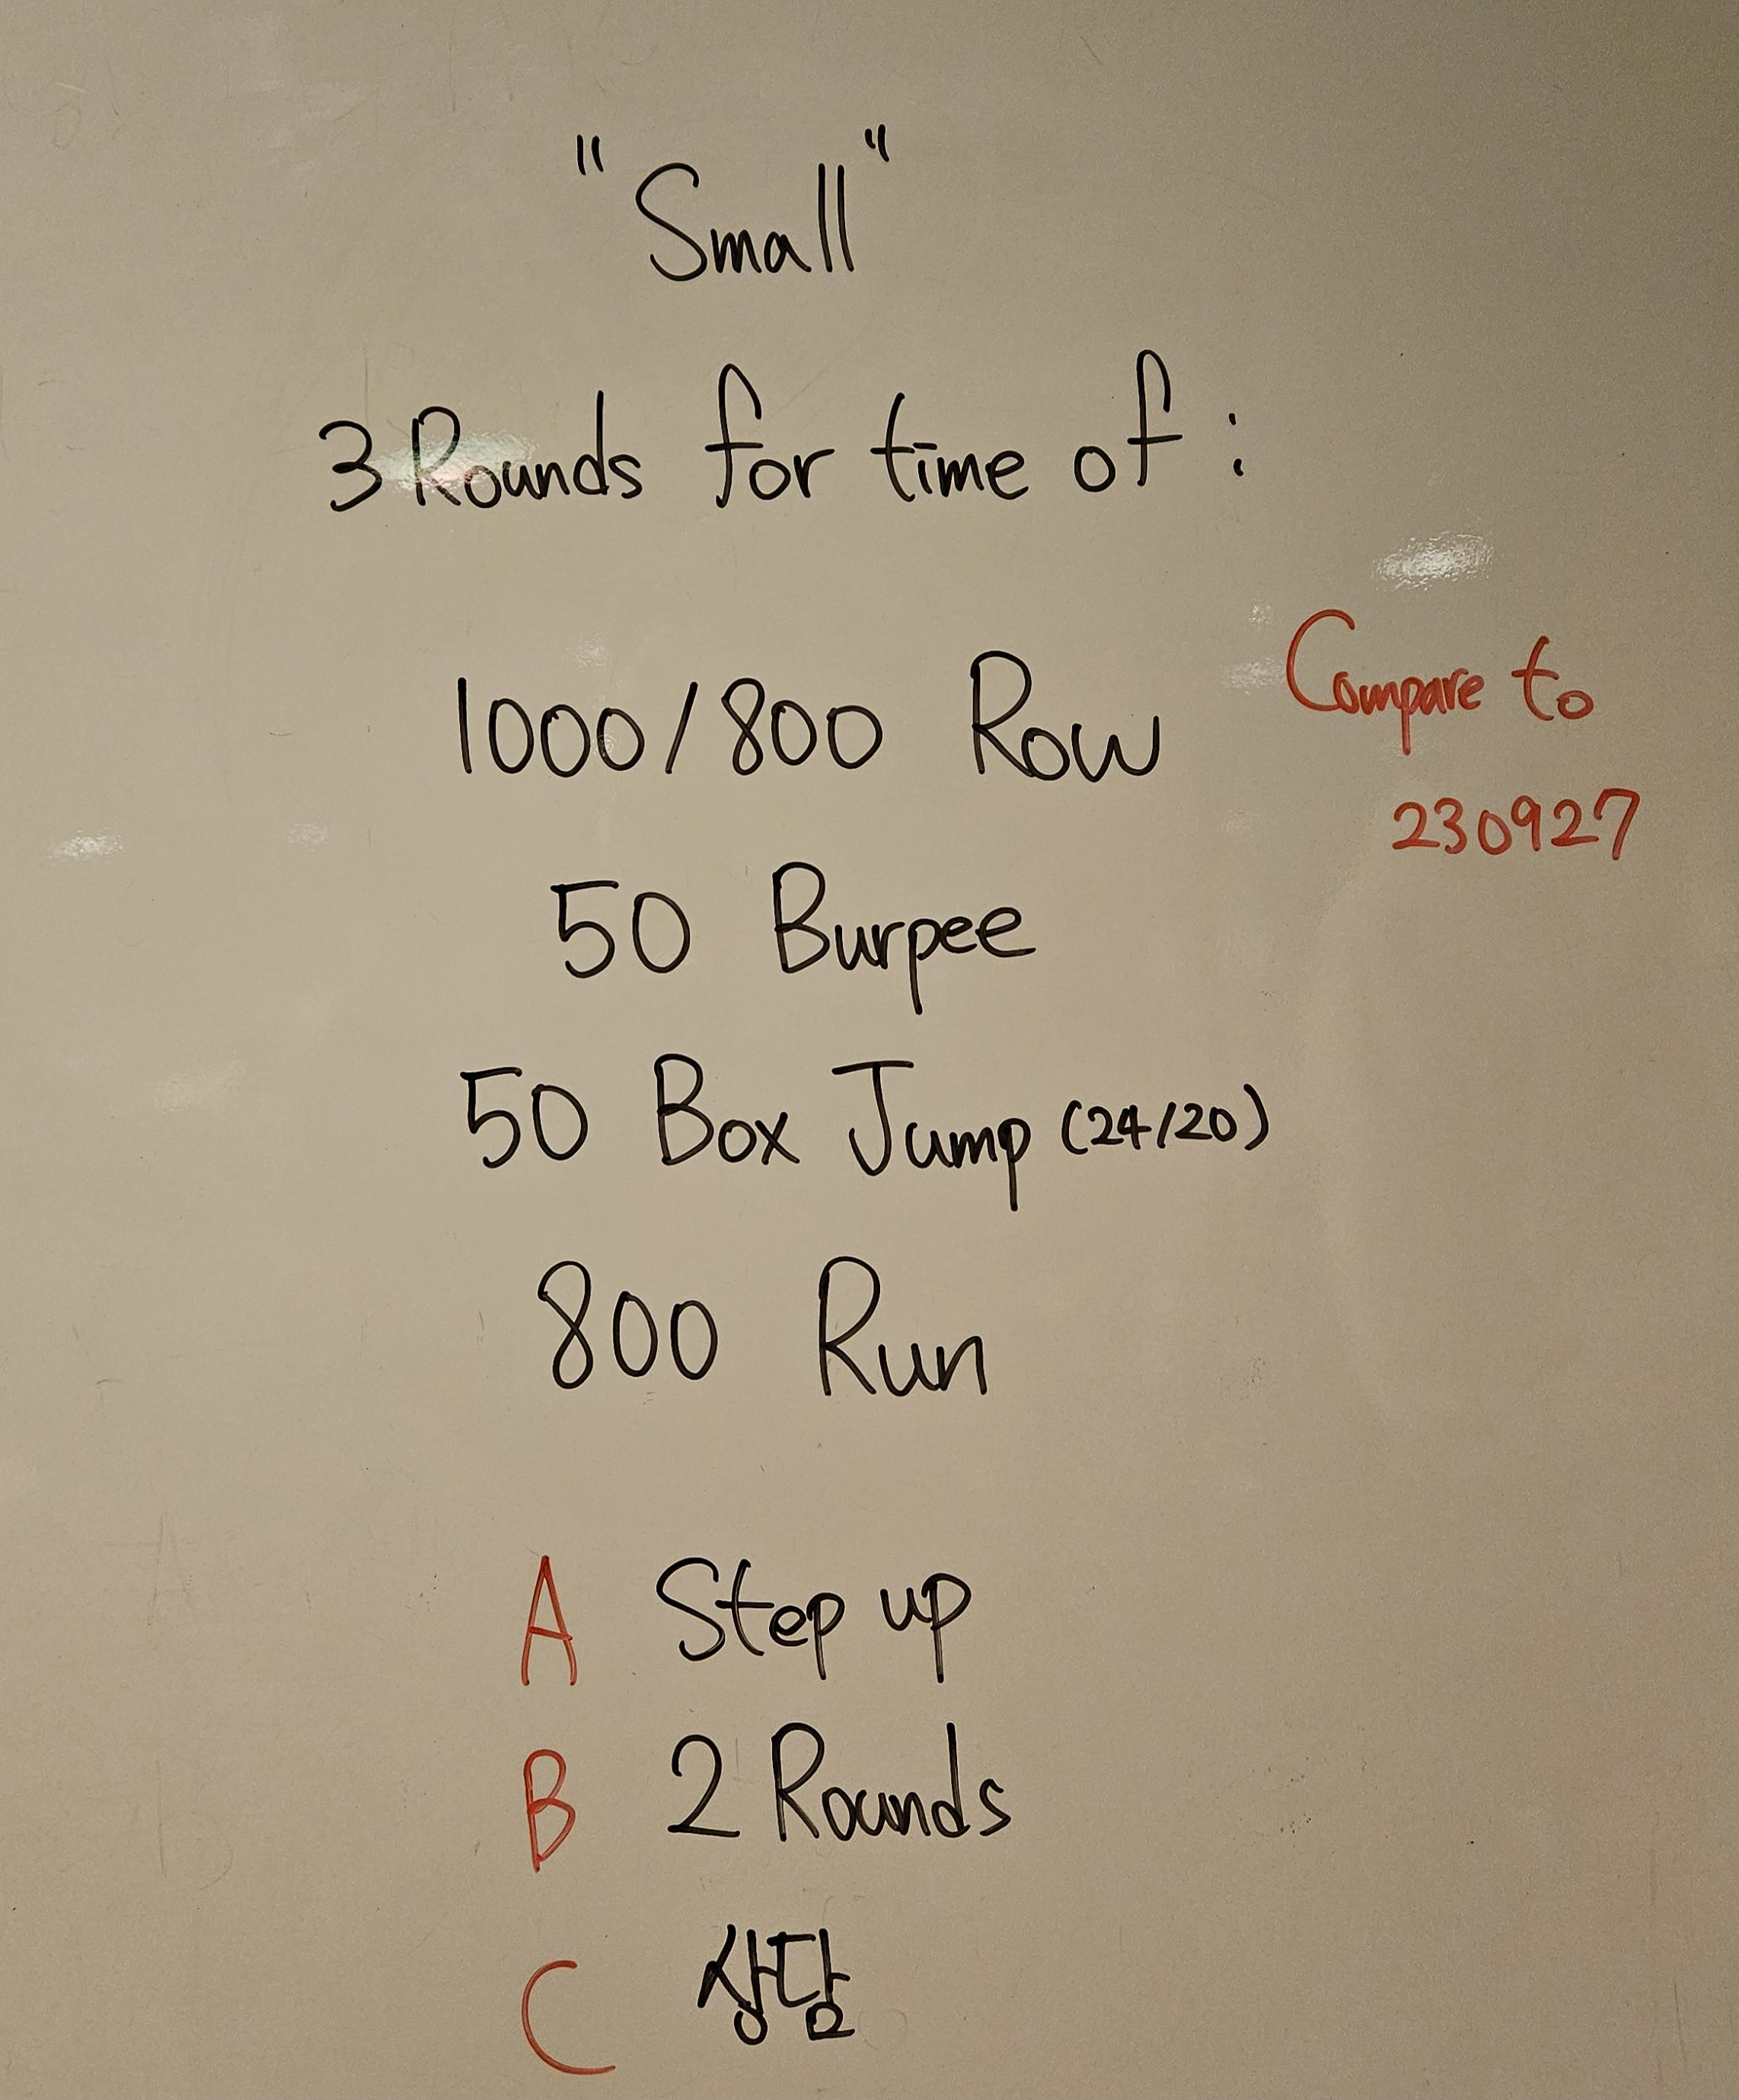 "Small"
3 Rounds for time of :
1000/800 Row
Compare to
230927
50 Burpee
50 Box Jump (24/20)
800 Run
A Step up
B 2 Rounds
C 상담